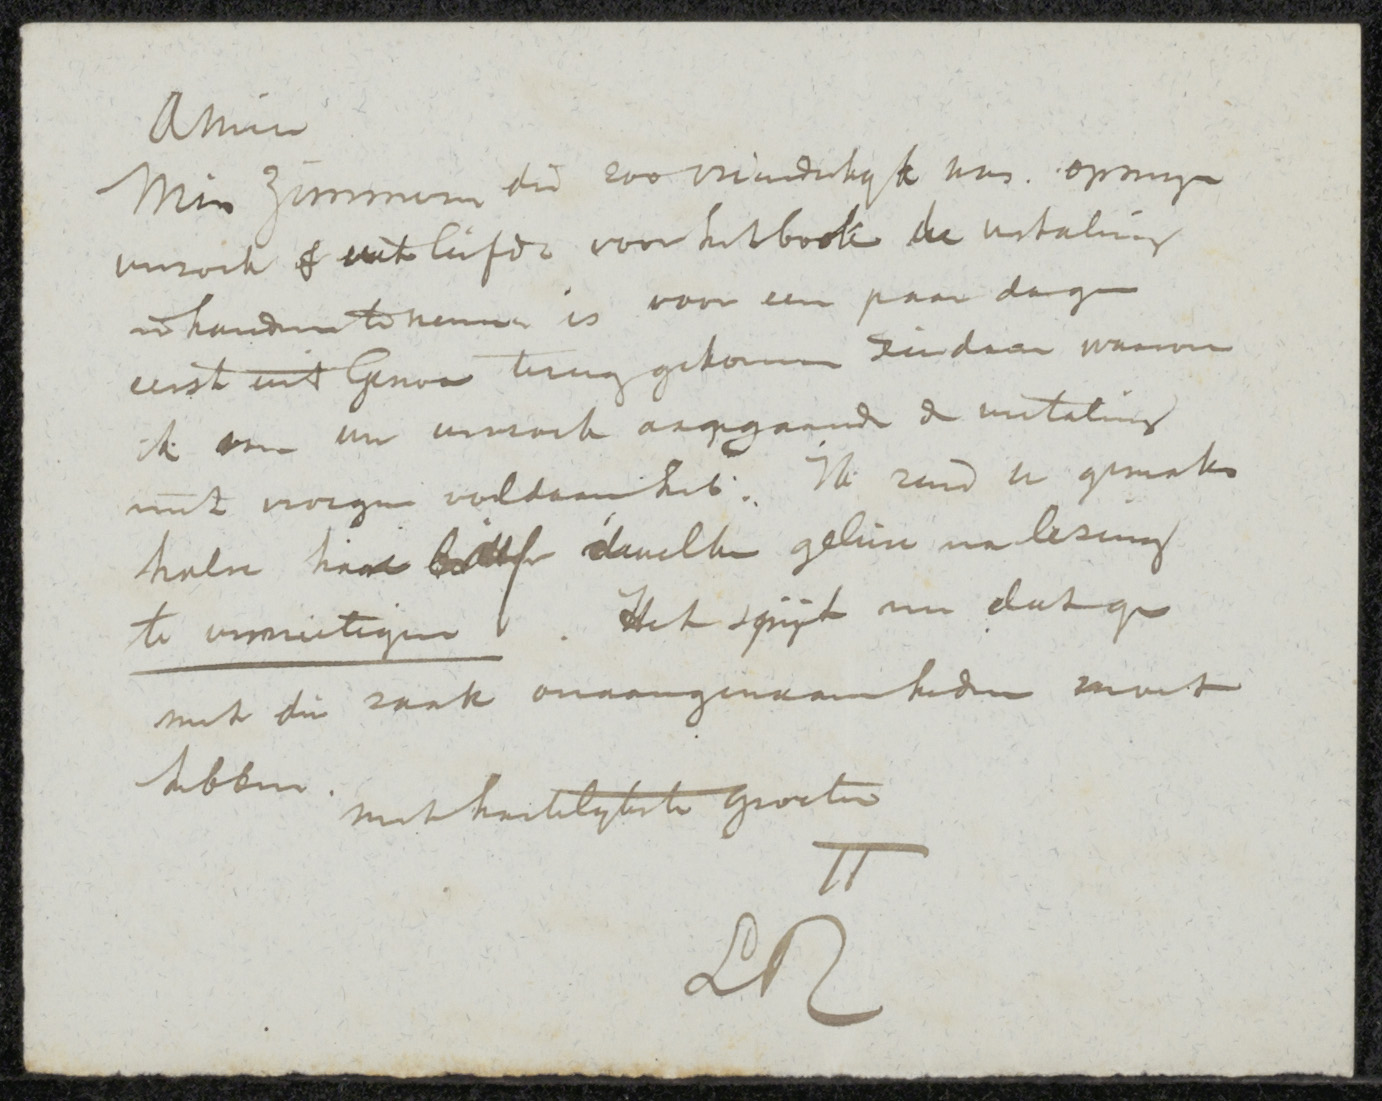 Amice
Miss Zimmern die zoo vriendelijk was op mijn
verzoek & uit liefde voor het boek de vertaling
in handen te nemen is voor een paar dagen
eerst uit Genoa terug gekomen ziedaar waarom
ik aan uw verzoek aangaande de vertaling
niet vroeger voldaan heb. Ik zend u gemaks
halve haar brief dewelke gelieve na lezing
te vernietigen. Het spijt me dat ge
met die zaak onaangenaamheden moet
hebben.
met hartelijkste groeten
TT
LR